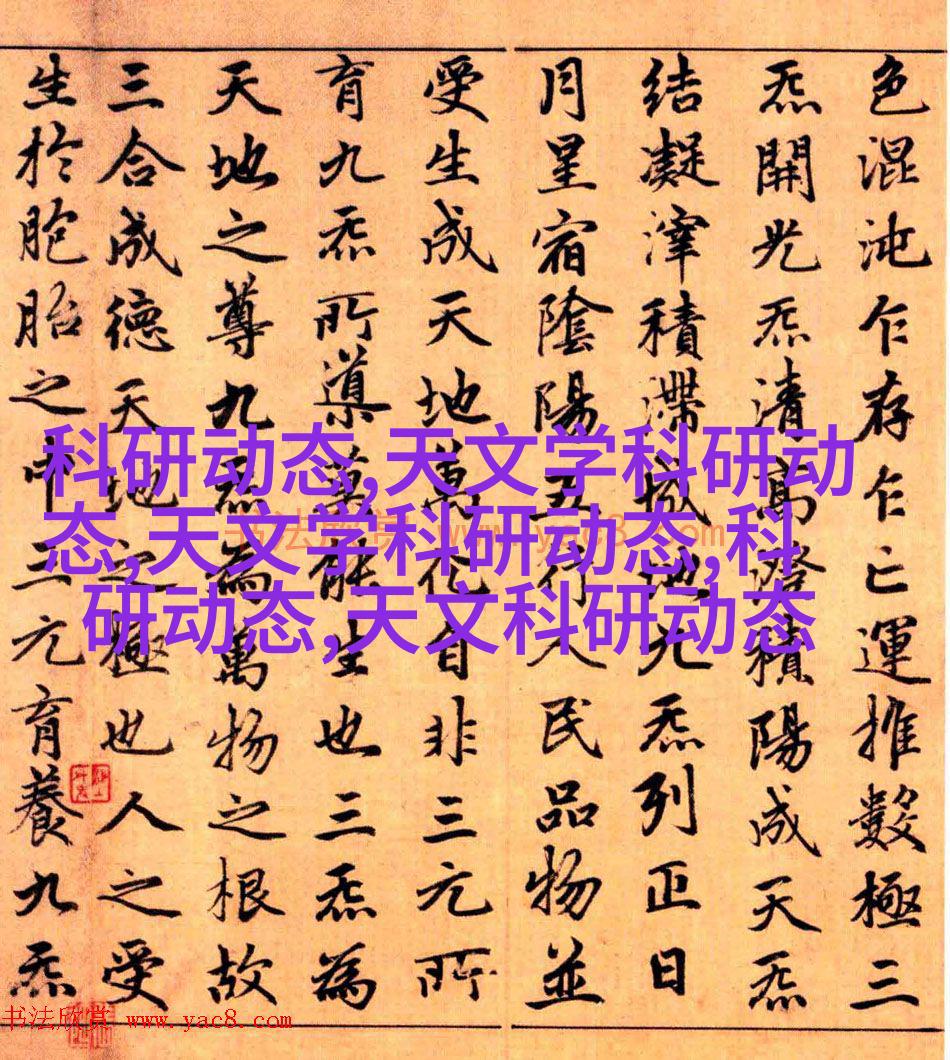 色混沌乍存乍亡運推數極三
炁開光炁清高澄積陽成天炁
結凝滓積滯成地九炁列正日
月星宿陰陽五行人民品物並
受生成天地萬化自非三元所
育九炁所導能生也三炁為
天地之尊九炁為萬物之根故
三合成德天地之極也人之受
生於胞胎之中三元育養九炁
科研动态,天文学科研动
态,天文学科研动态,科
研动态,天文科研动态
书法欣赏 www.yac8.com
书法欣赏 www.yac8.com